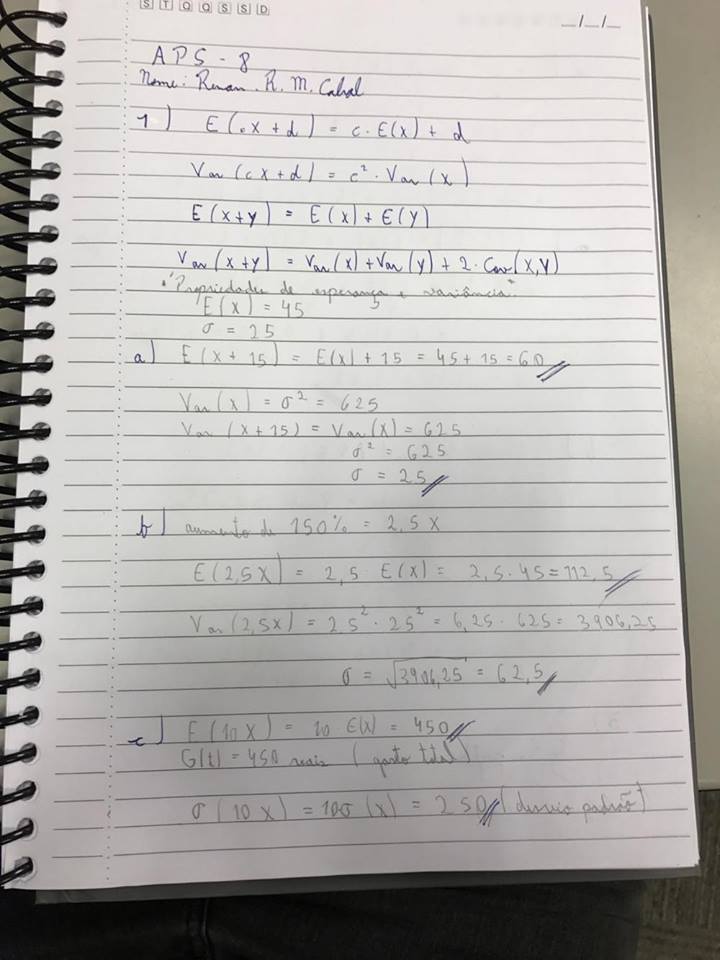 S T Q Q S S D
__/__/__
APS - 8
Nome: Renan. R. M. Cabral
1) E(cX + d) = c. E(X) + d
Var(cX+d) = c² . Var(X)
E(X+Y) = E(X) + E(Y)
Var(X+Y) = Var(X) + Var(Y) + 2. Cov(X,Y)
"Propriedades de esperança e variância"
E(X) = 45
σ = 25
a) E(X + 15) = E(X) + 15 = 45 + 15 = 60
Var(X) = σ² = 625
Var(X+15) = Var(X) = 625
σ² = 625
σ = 25
b) aumento de 150% = 2,5 X
E(2,5X) = 2,5 E(X) = 2,5 . 45 = 112,5
Var(2,5X) = 2,5² . 25² = 6,25 . 625 = 3906,25
σ = √3906,25 = 62,5
c) E(10X) = 10 E(X) = 450
G(t) = 450 reais (gasto total)
σ(10X) = 10σ(X) = 250 (desvio padrão)